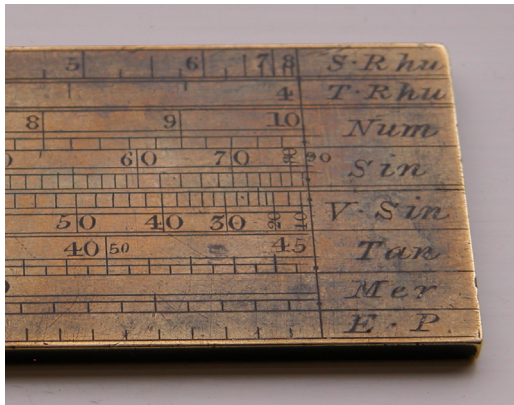 5 6 7 8 S·Rhu
4 T·Rhu
8 9 10 Num
60 70 80 90 Sin
50 40 30 20 10 V·Sin
40 50 45 Tan
Mer
E·P